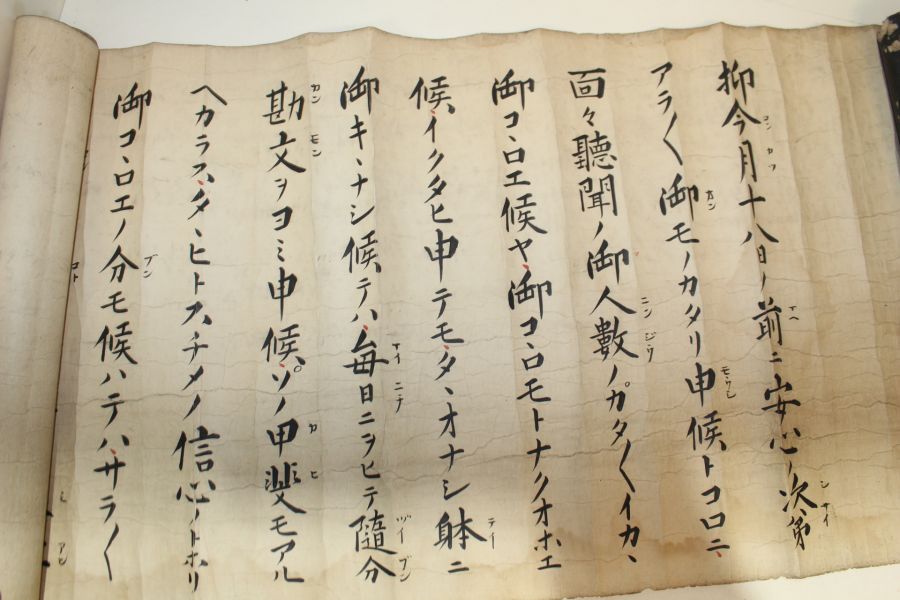 抑今月十八日ノ前ニ安心ノ次第
アラ〱御モノカタリ申候トコロニ、
面々聽聞ノ御人數ノカタ〱イカヽ
御コヽロエ候ヤ、御コヽロモトナクオホエ
候、イクタヒ申テモ、タヽオナシ躰ニ
御キヽナシ候テハ、每日ニヲヒテ隨分
勘文ヲヨミ申候、ソノ甲斐モアル
ヘカラス、タヽヒトスチメノ信心ノトホリ
御コヽロエノ分モ候ハテハ、サラ〱